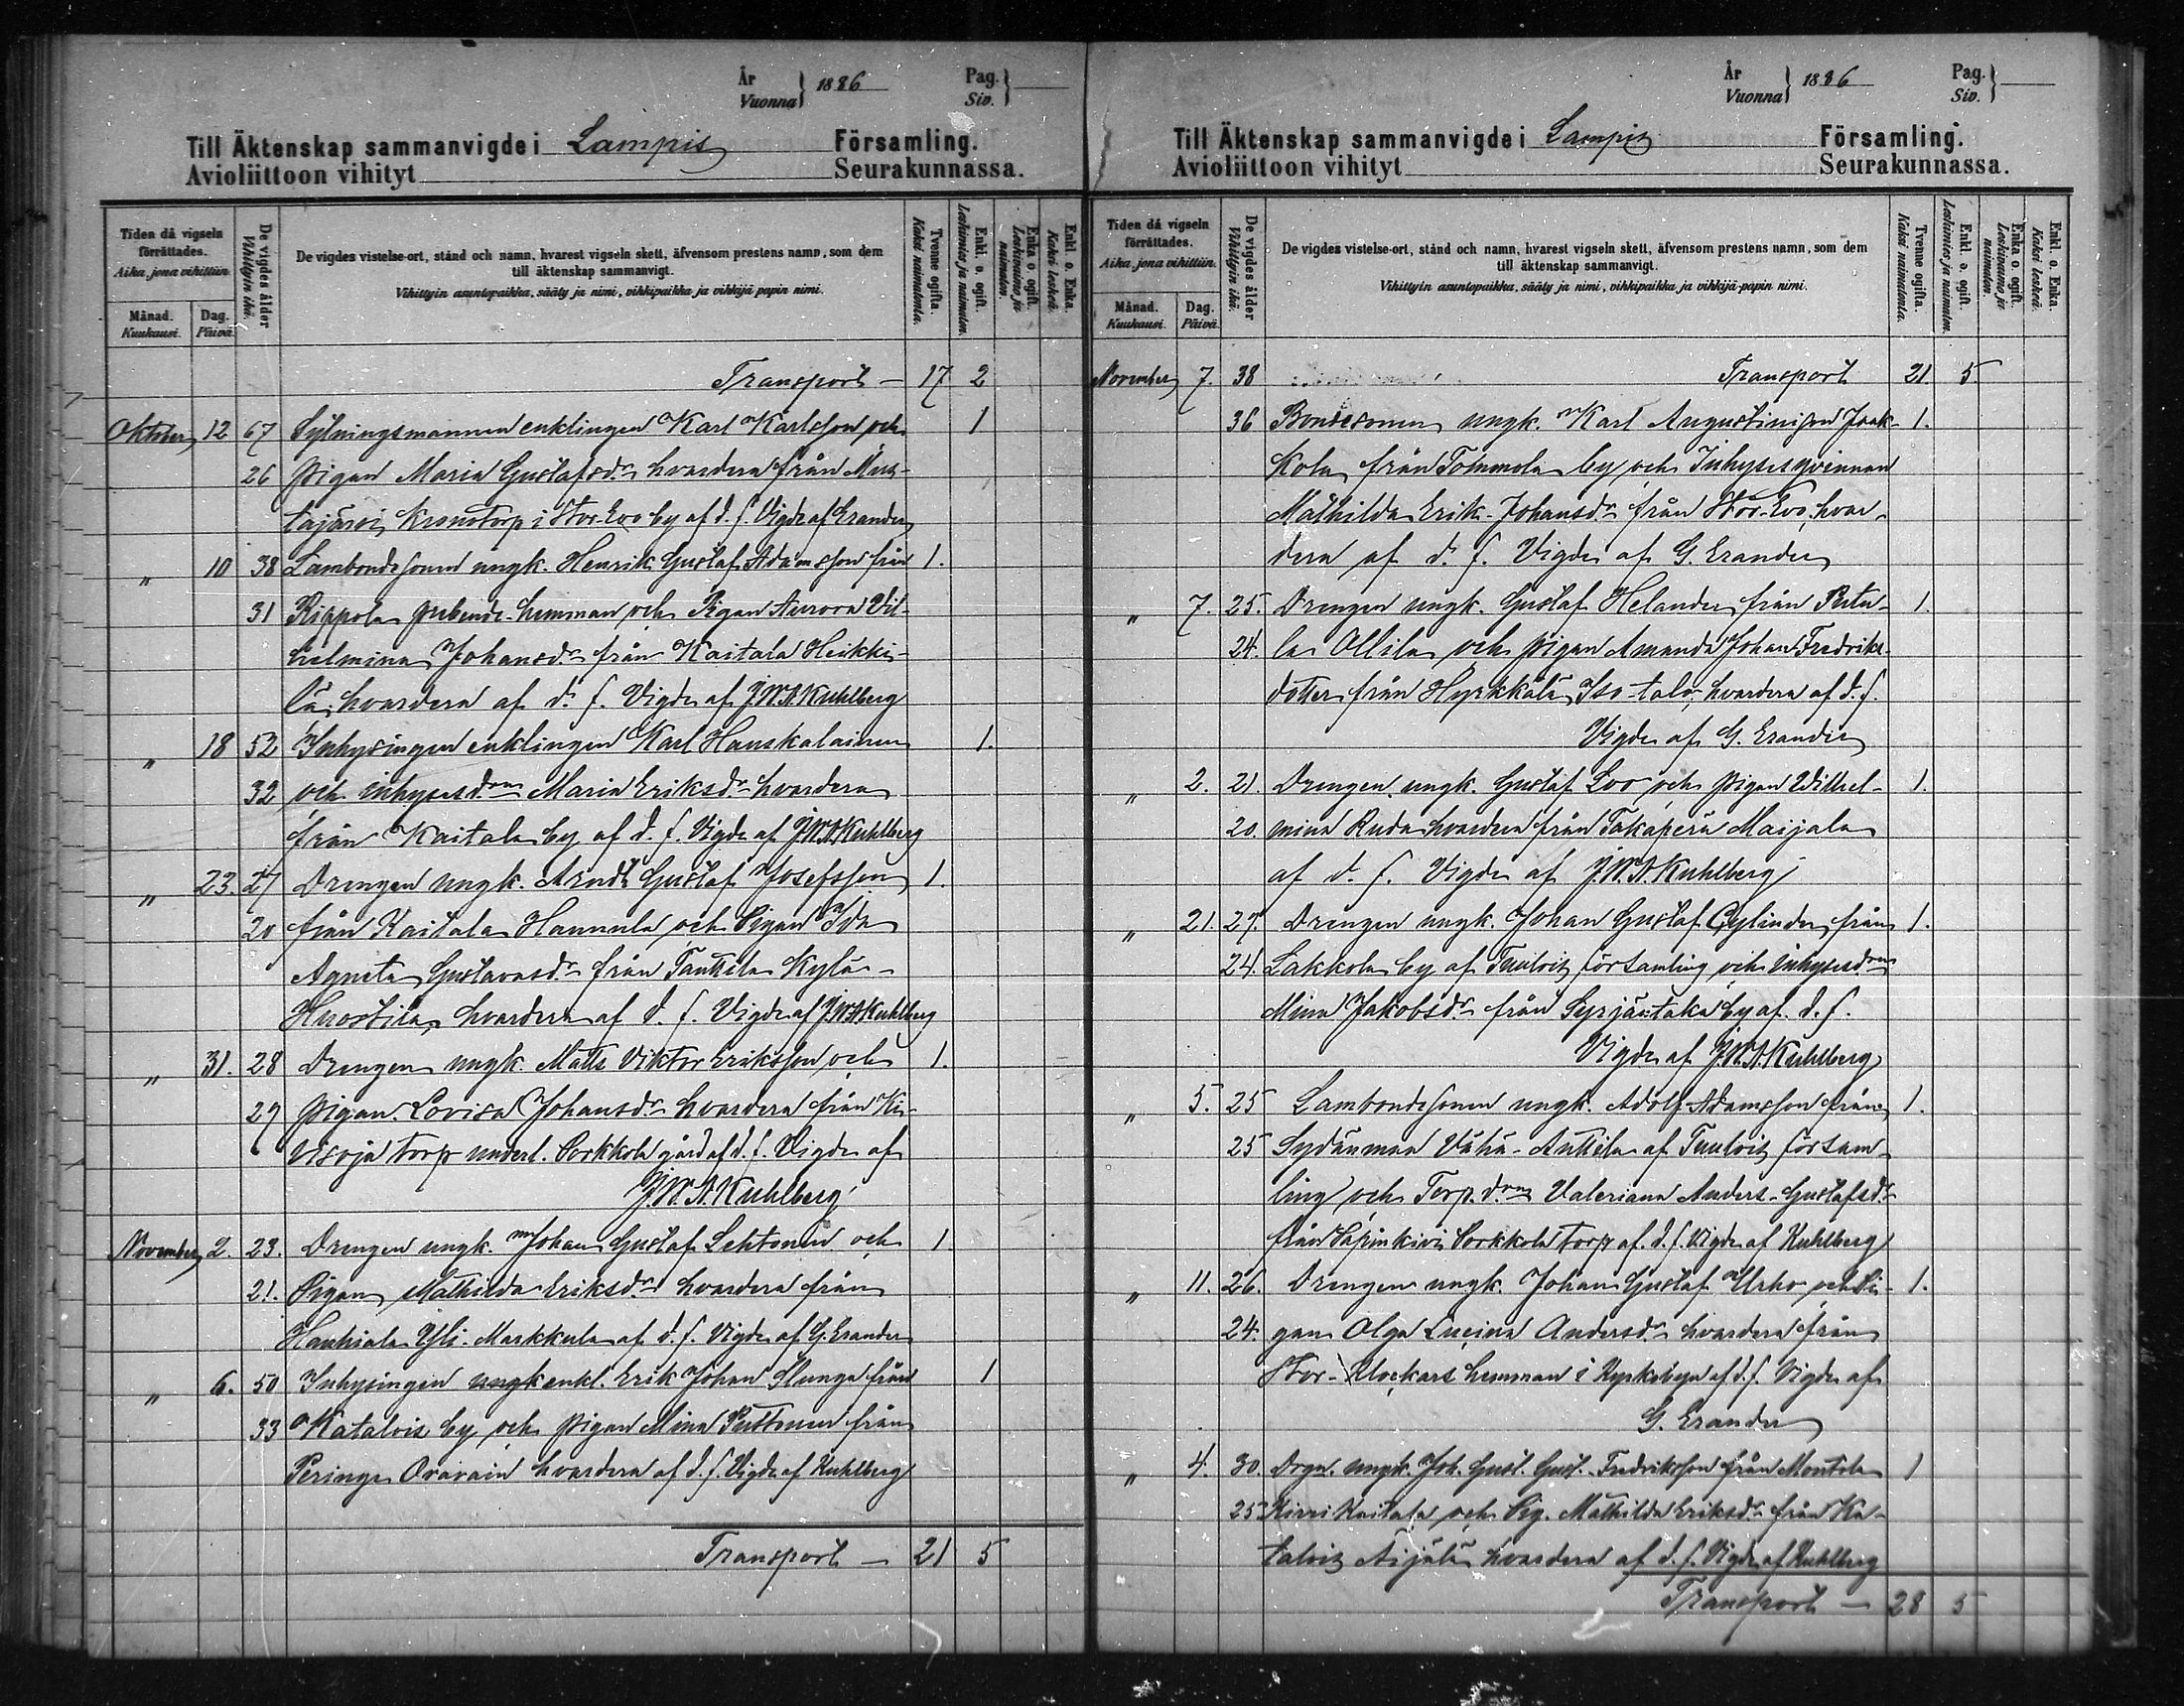 År
Vuonna } 1886
Pag.
Siv. }
Till Äktenskap sammanvigde i Lampis Församling.
Avioliittoon vihityt Seurakunnassa.
Tiden då vigseln förrättades.
Aika, jona vihittiin.
Månad.
Kuukausi.
Dag.
Päivä.
De vigdes ålder
Vihittyin ikä.
De vigdes vistelse-ort, stånd och namn, hvarest vigseln skett, äfvensom prestens namn, som dem
till äktenskap sammanvigt.
Vihittyin asuntopaikka, sääty ja nimi, vihkipaikka ja vihkijä-papin nimi.
Tvenne ogifta.
Kaksi naimatonta.
Enkl. o. ogift.
Leskimies ja naimaton.
Enka o. ogift.
Leskivaimo ja naimaton.
Enkl. o. Enka.
Kaksi leskeä.
Transport — 17 2
Oktober 12 67 Sytningsmannen enklingen Karl Karlsson och 1
26 pigan Maria Gustafsdr hvardera från Mus-
tajärvi Kronotorp i Stor-Evo by af d. f. Vigde af Erander
" 10 38 Lambondesonen ungk. Henrik Gustaf Adamsson från 1.
31 Rippola prebende-hemman och Pigan Aurora Vil-
helmina Johansdr från Kaitala Heikki-
lä hvardera af d. f. Vigde af J.W.A. Kuhlberg
" 18 52 Inhysingen enklingen Karl Hauskalainen 1.
32 och inhysesdrn Maria Eriksdr hvardera
från Kaitala by af d. f. Vigde af J.W.A. Kuhlberg
" 23. 27 Drengen ungk. Arndt Gustaf Josefsson 1.
20 från Kaitala Hannula och Pigan Ida
Agneta Gustavasdr från Tanttila Kylä-
Huostila hvardera af d. f. Vigde af J.W.A. Kuhlberg
" 31. 28 Drengen ungk. Matts Viktor Eriksson och 1.
29 pigan Lovisa Johansdr hvardera från Ki-
visoja torp underl. Porkkola gård af d. f. Vigde af
J.W.A. Kuhlberg
November 2. 23. Drengen ungk. Johan Gustaf Lehtonen och 1
21. Pigan Mathilda Eriksdr hvardera från
Hauhiala Yli-Markkula af d. f. Vigde af G. Erander
" 6. 50 Inhysingen ungk enkl. Erik Johan Slunga från 1
33 Katalois by och pigan Mina Puttonen från
Peringe Oravain hvardera af d. f. Vigde af Kuhlberg
Transport — 21 5
År
Vuonna } 1886
Pag.
Siv. }
Till Äktenskap sammanvigde i Lampis Församling.
Avioliittoon vihityt Seurakunnassa.
Tiden då vigseln förrättades.
Aika, jona vihittiin.
Månad.
Kuukausi.
Dag.
Päivä.
De vigdes ålder
Vihittyin ikä.
De vigdes vistelse-ort, stånd och namn, hvarest vigseln skett, äfvensom prestens namn, som dem
till äktenskap sammanvigt.
Vihittyin asuntopaikka, sääty ja nimi, vihkipaikka ja vihkijä-papin nimi.
Tvenne ogifta.
Kaksi naimatonta.
Enkl. o. ogift.
Leskimies ja naimaton.
Enka o. ogift.
Leskivaimo ja naimaton.
Enkl. o. Enka.
Kaksi leskeä.
November 7. 38 Transport 21 5
36 Bondesonen ungk. Karl Augustinsson Jaak- 1.
kola från Tömmola by och Inhysesqvinnan
Mathilda Erik-Johansdr från Stor-Evo, hvar-
dera af d. f. Vigde af G. Erander
" 7. 25. Drengen ungk. Gustaf Helander från Putu- 1.
24. la Ollila och pigan Amanda Johan Fredriks-
dotter från Hyrkkälä Iso-talo, hvardera af d. f.
Vigde af G. Erander
" 2. 21. Drengen ungk. Gustaf Loo och pigan Wilhel- 1.
20. mina Ruda hvardera från Takaperä Maijala
af d. f. Vigde af J.W.A. Kuhlberg
" 21. 27. Drengen ungk. Johan Gustaf Cylinder från 1.
24. Lakkola by af Tuulois församling och inhysesdrn
Mina Jakobsdr från Syrjäntaka by af d. f.
Vigde af J.W.A. Kuhlberg
" 5. 25 Lambondesonen ungk. Adolf Adamsson från 1.
25 Sydänmaa Vähä-Anttila af Tuulois försam-
ling och Torp.drn Valeriana Anders-Gustafsdr
från Sapinkivi Porkkola torp af d. f. Vigde af Kuhlberg
" 11. 26. Drengen ungk. Johan Gustaf Urho och Pi- 1.
24. gan Olga Lucina Andersdr hvardera från
Stor-Klockars hemman i Kyrkobyn af d. f. Vigde af
G. Erander
" 4. 30. Drgn. ungk. Joh. Gust. Gust.-Fredriksson från Montola 1
25 Kaitala och Pig. Mathilda Eriksdr från Ka-
talois Äijälä hvardera af d. f. Vigde af Kuhlberg
Transport — 28 5